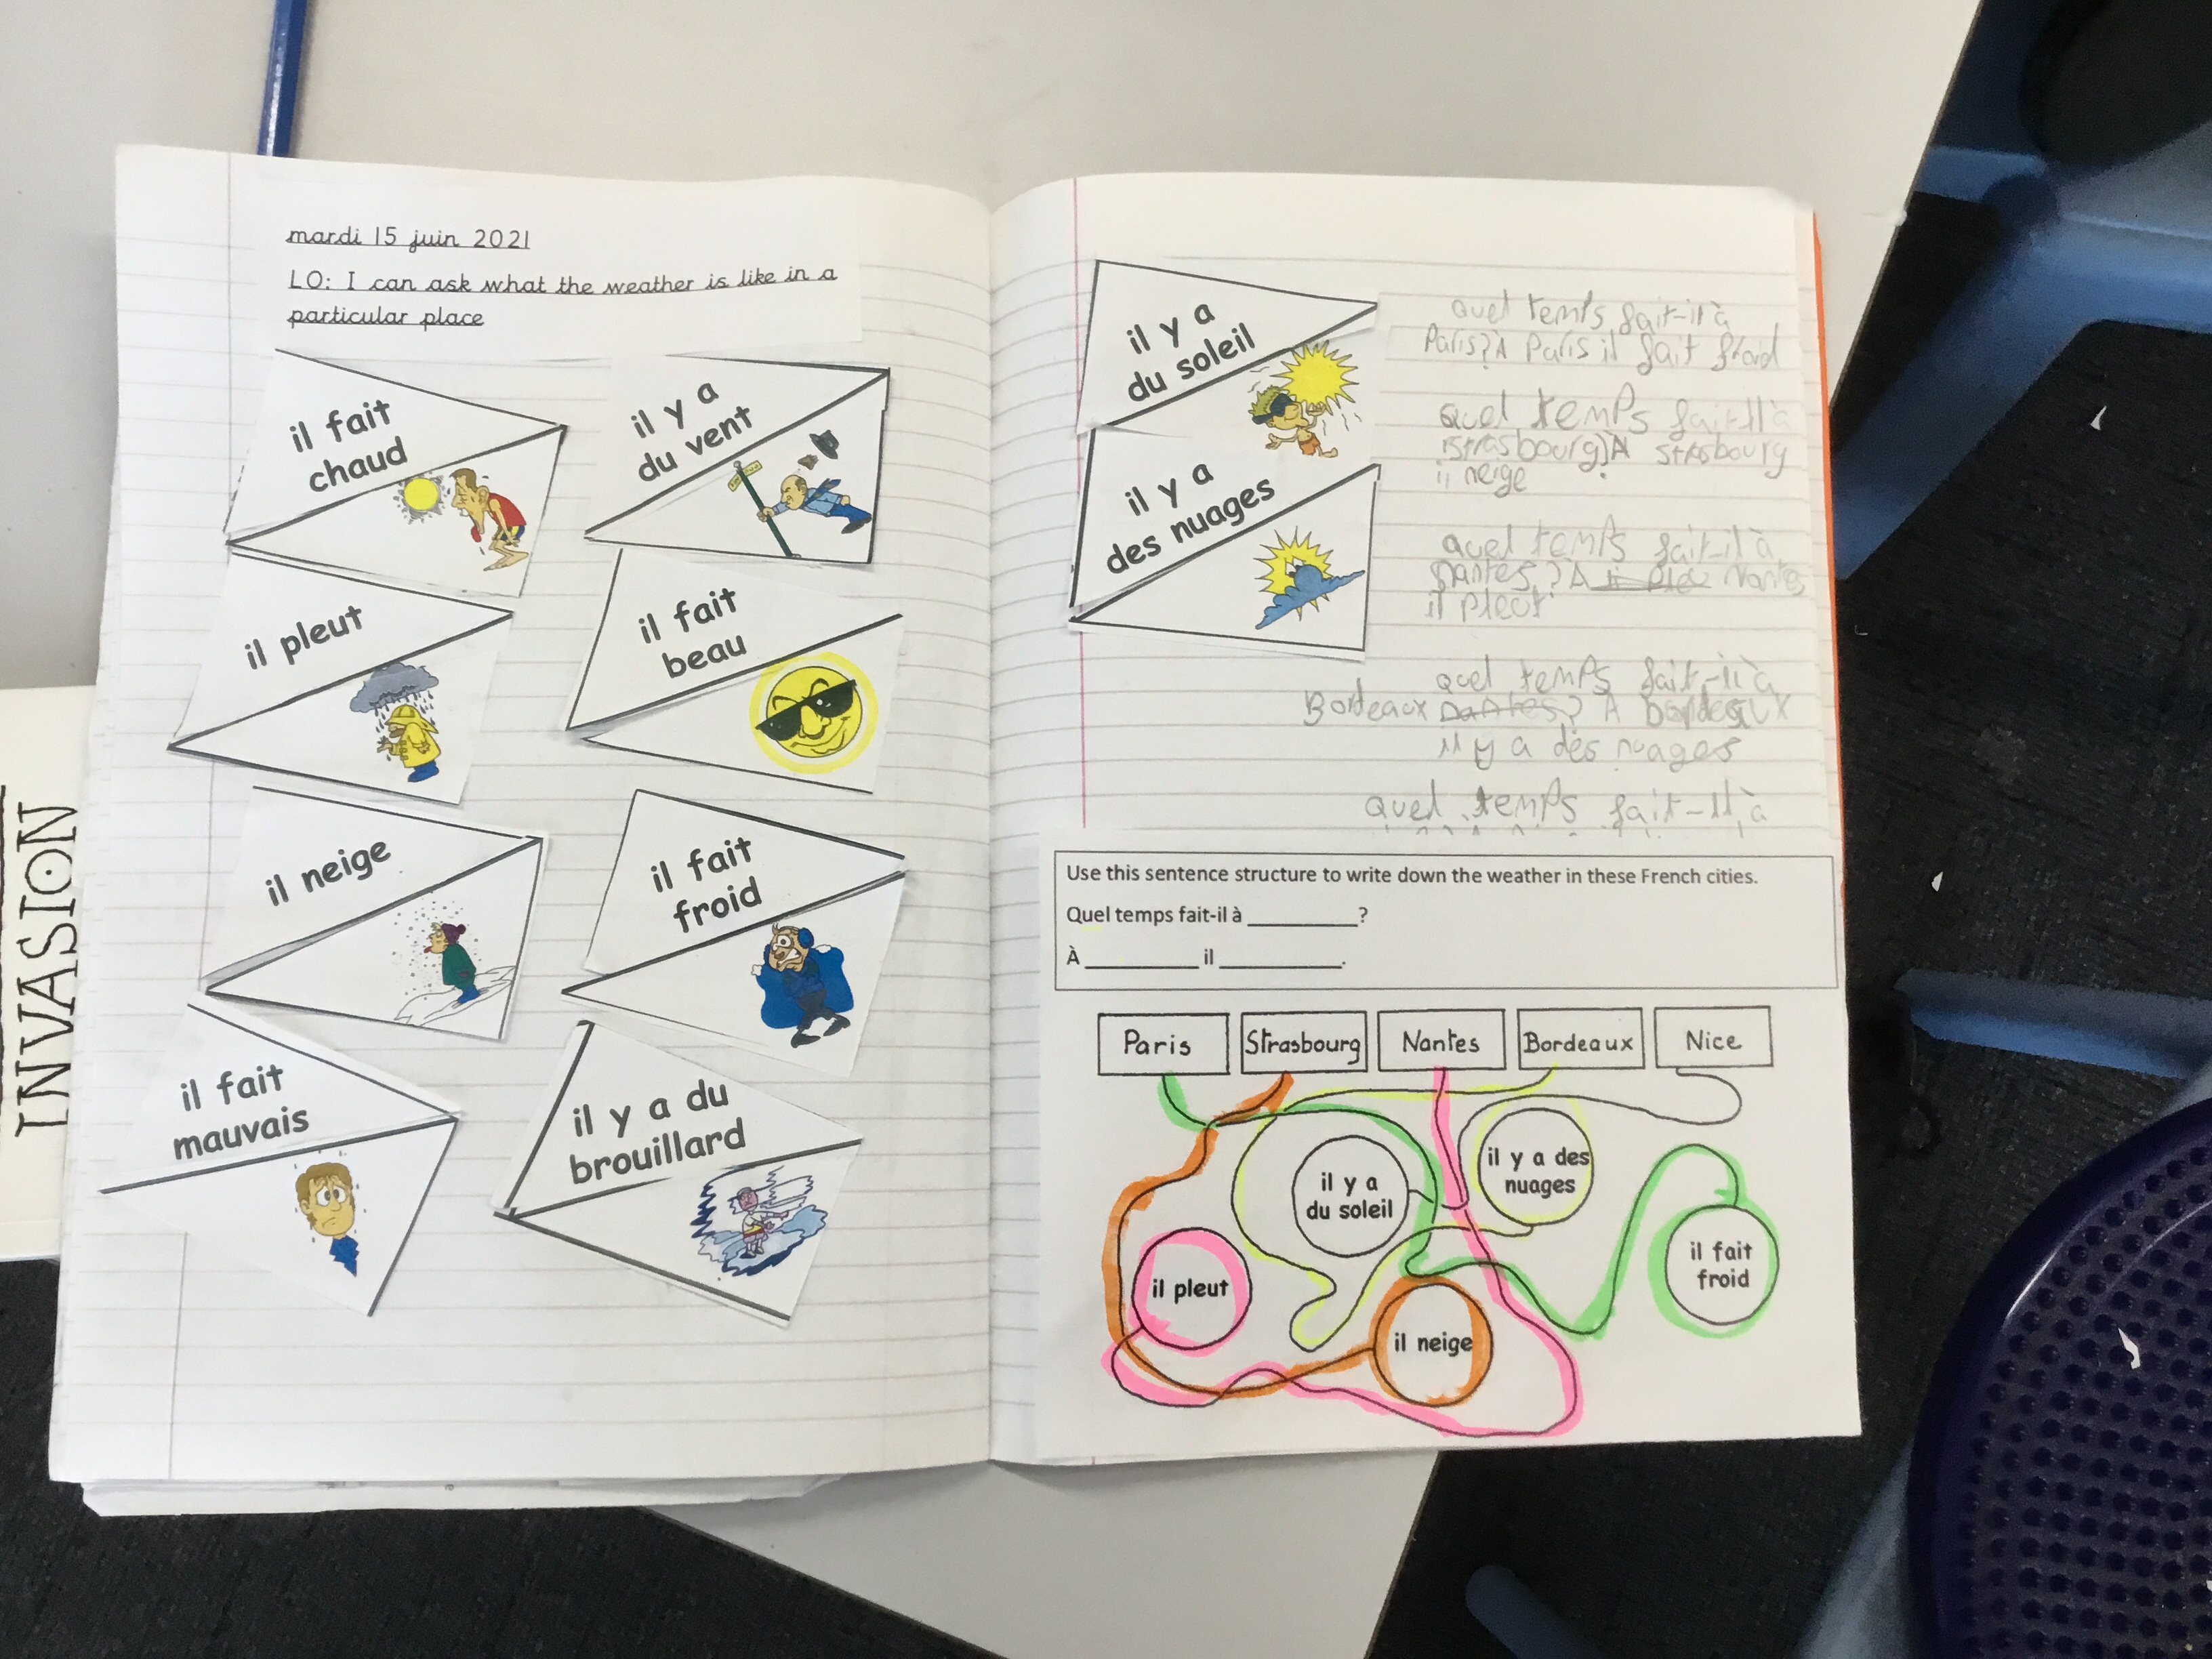 mardi 15 juin 2021
LO: I can ask what the weather is like in a
particular place
il fait
chaud
il y a
du vent
il pleut
il fait
beau
il neige
il fait
froid
il fait
mauvais
il y a du
brouillard
INVASION
il y a
du soleil
il y a
des nuages
quel temps fait-il à
Paris? À Paris il fait froid
quel temps fait-il à
strasbourg? À strasbourg
il neige
quel temps fait-il à
nantes? À Nantes
il pleut
quel temps fait-il à
Bordeaux nantes? À bordeaux
il y a des nuages
quel temps fait-il à
Use this sentence structure to write down the weather in these French cities.
Quel temps fait-il à __________?
À __________ il ___________.
Paris
Strasbourg
Nantes
Bordeaux
Nice
il y a
du soleil
il y a des
nuages
il pleut
il neige
il fait
froid